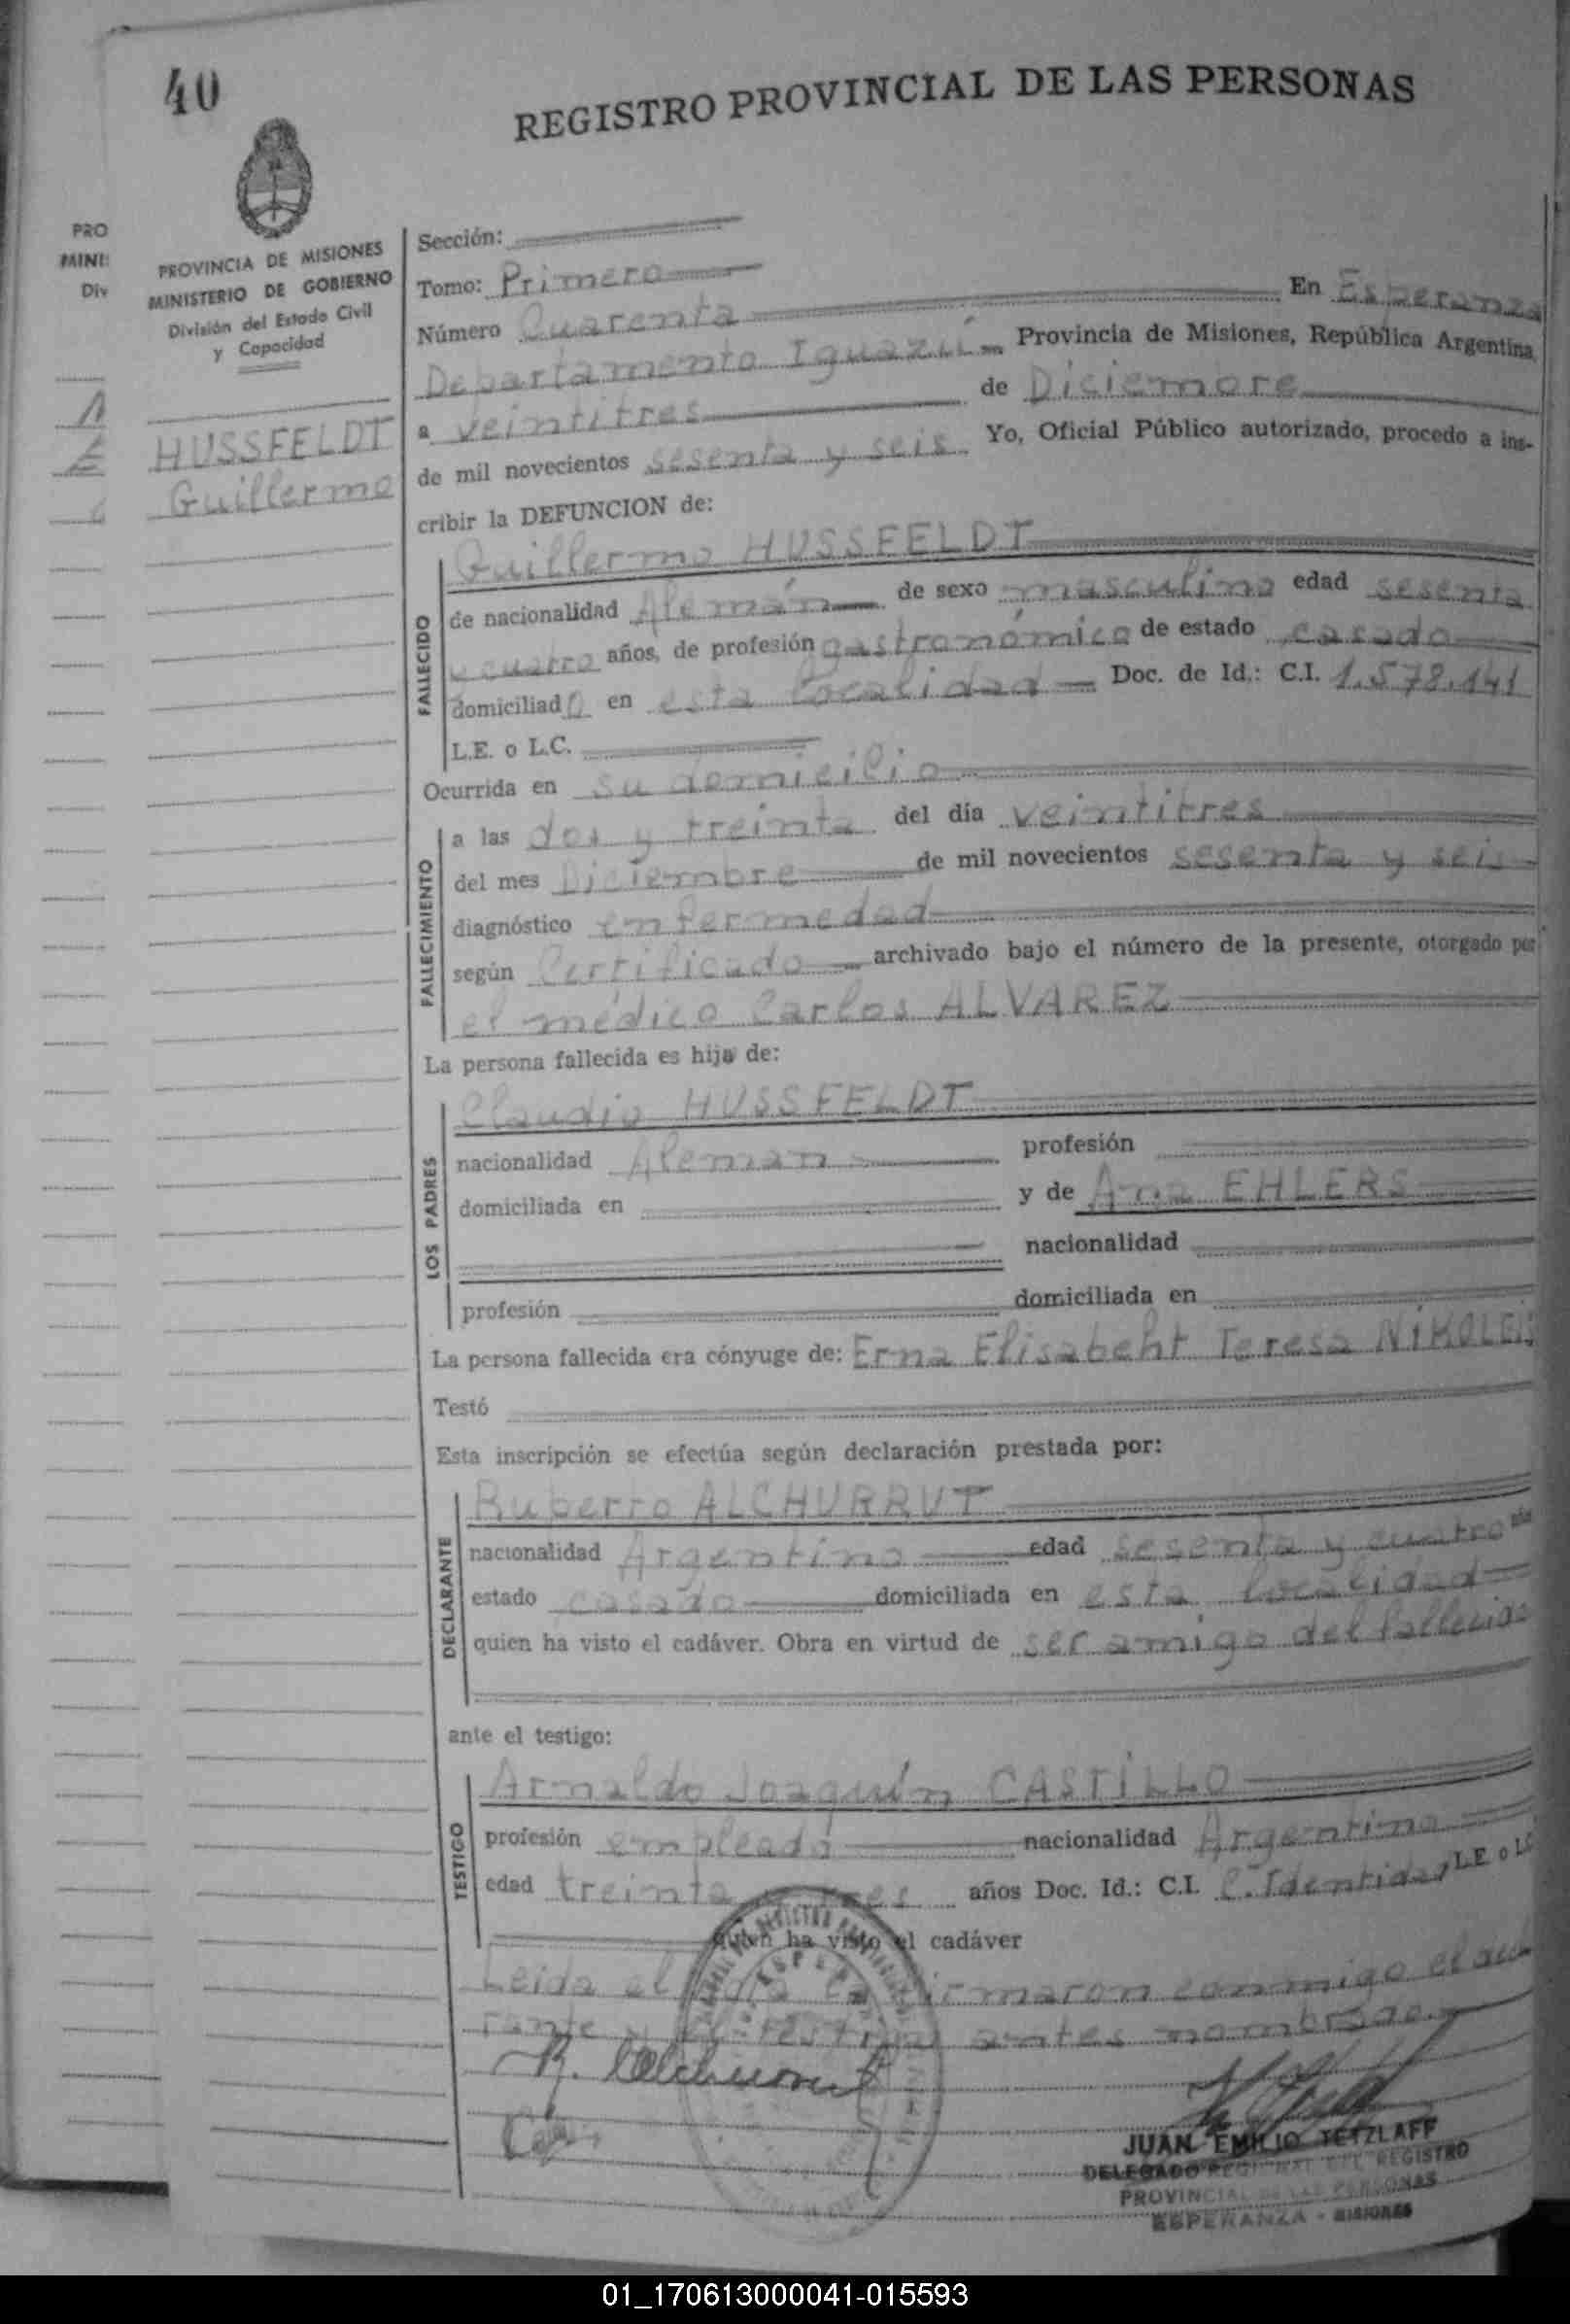 40
REGISTRO PROVINCIAL DE LAS PERSONAS
PRO
MINI
Div
PROVINCIA DE MISIONES
MINISTERIO DE GOBIERNO
División del Estado Civil
y Capacidad
HUSSFELDT
Guillermo
Sección:
Tomo: Primero
Número Cuarenta En Esperanza
Departamento Iguazú Provincia de Misiones, República Argentina,
a veintitres de Diciembre
de mil novecientos sesenta y seis Yo, Oficial Público autorizado, procedo a ins-
cribir la DEFUNCION de:
FALLECIDO
Guillermo HUSSFELDT
de nacionalidad Alemán de sexo masculino edad sesenta
y cuatro años, de profesión gastronómico de estado casado
domiciliado en esta localidad Doc. de Id.: C.I. 1.578.141
L.E. o L.C.
Ocurrida en su domicilio
FALLECIMIENTO
a las dos y treinta del día veintitres
del mes Diciembre de mil novecientos sesenta y seis
diagnóstico enfermedad
según Certificado archivado bajo el número de la presente, otorgado por
el médico Carlos ALVAREZ
La persona fallecida es hijo de:
LOS PADRES
Claudio HUSSFELDT
nacionalidad Aleman profesión
domiciliada en y de Ana EHLERS
nacionalidad
profesión domiciliada en
La persona fallecida era cónyuge de: Erna Elisabeht Teresa
Testó
Esta inscripción se efectúa según declaración prestada por:
DECLARANTE
Ruberto ALCHURRUT
nacionalidad Argentino edad sesenta y cuatro
estado casado domiciliada en esta localidad
quien ha visto el cadáver. Obra en virtud de ser amigo del fallecido
ante el testigo:
TESTIGO
Arnaldo Joaquín CASTILLO
profesión empleado nacionalidad Argentino
edad treinta y tres años Doc. Id.: C.I. C. Identidad L.E. o LC
quien ha visto el cadáver
Leida el acta la firmaron conmigo el
y el testigo antes nombrado.
R. Alchurrut
JUAN EMILIO TETZLAFF
DELEGADO REGIONAL DEL REGISTRO
PROVINCIAL DE LAS PERSONAS
ESPERANZA - MISIONES
01_170613000041-015593